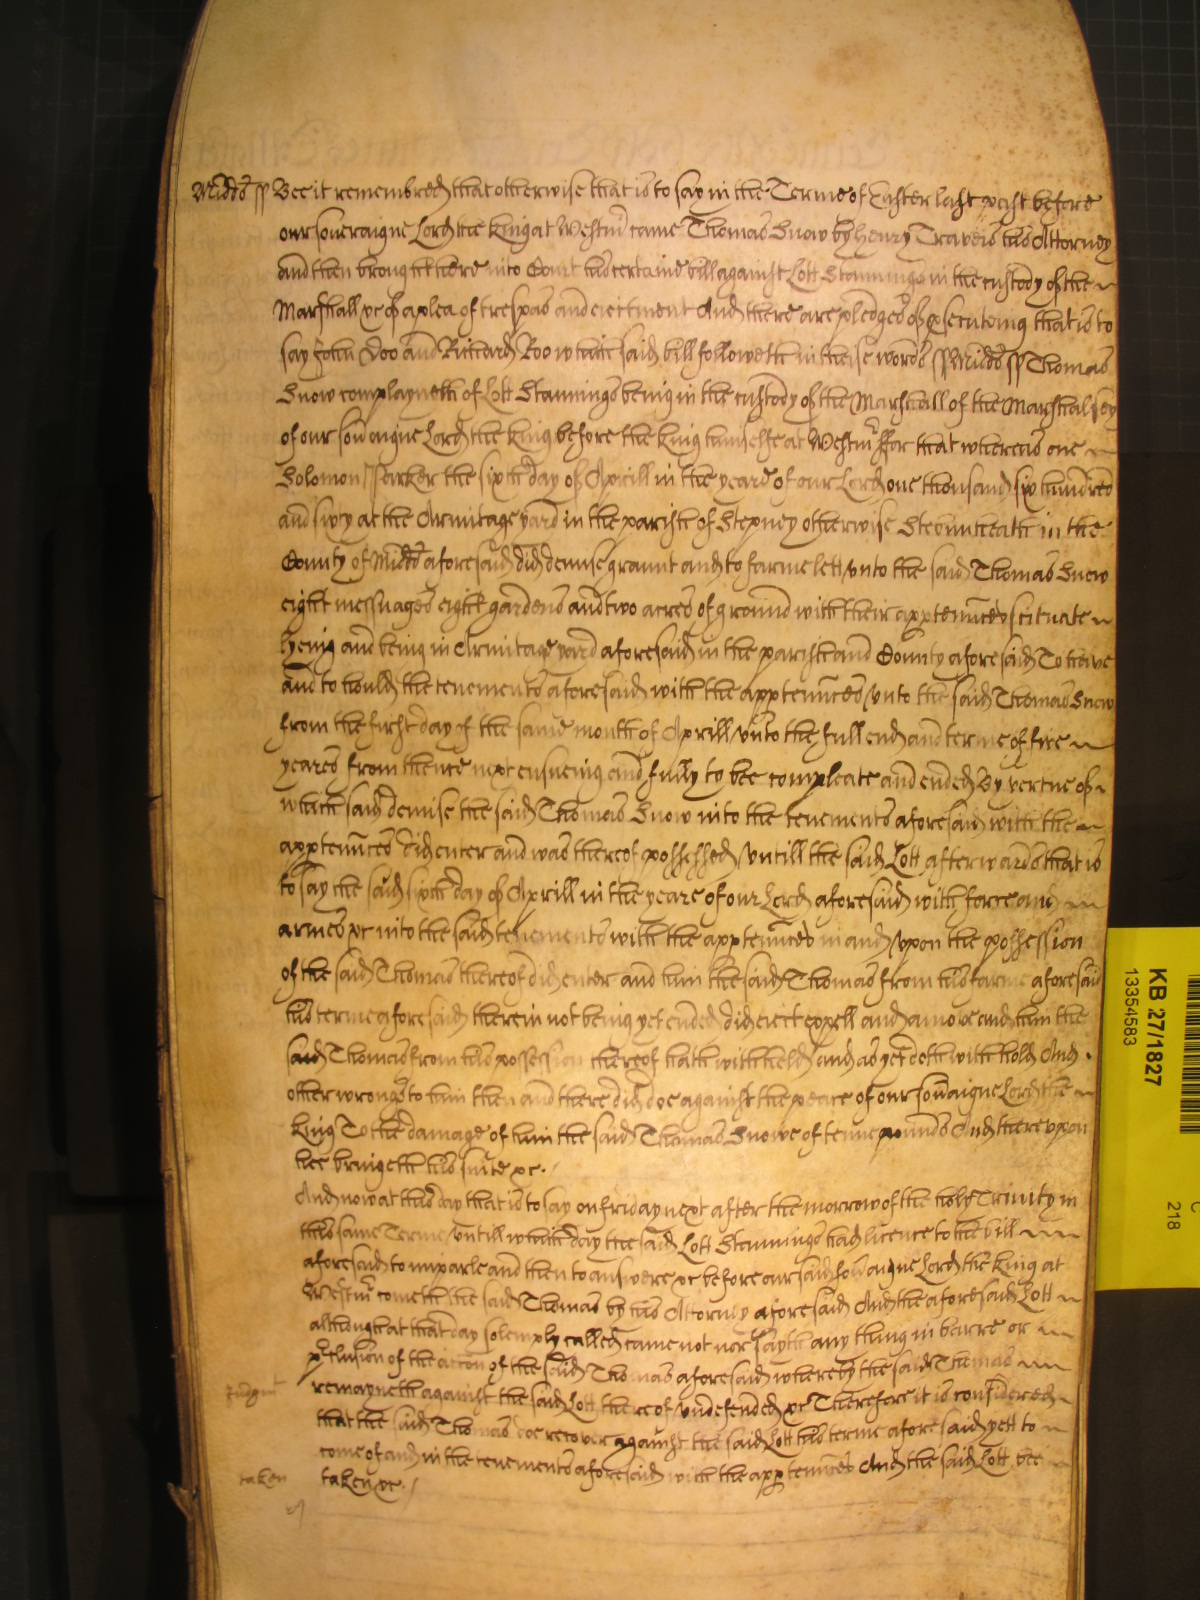 Midds ss Bee it remembred that otherwise that is to say in the Terme of Easter last past before
our soveraigne Lord the King at Westm̃ came Thomas Snow by Henry Travers his Attorney
and then brought here into Court his certaine bill against Lott Stannings in the custody of the
Marshall &c of a plea of trespas and eiectment And there are pledges of p̱secuteing that is to
say John Doo and Richard Roo which said bill followeth in theise words ss Midds ss Thomas
Snow complayneth of Lott Stannings being in the custody of the Marshall of the Marshalsey
of our sov̄aigne Lord the King before the King himselfe at Westm̃ ffor that whereas one
Solomon Parker the sixth day of Aprill in the yeare of our Lord one thousand six hundred
and sixty at the Armitage yard in the parish of Stepney otherwise Stebunheath in the
County of Midds aforesaid did demise graunt and to farme lett unto the said Thomas Snow
eight messuages eight gardens and two acres of ground with their apptenñces scituate
lyeing and being in Armitage yard aforesaid in the parish and County aforesaid To have
and to hould the tenements aforesaid with the apptenñces unto the said Thomas Snow
from the first day of the same month of Aprill unto the full end and terme of five
yeares from thence next ensueing and fully to bee compleate and ended By vertue of
which said demise the said Thomas Snow into the tenements aforesaid with the
apptenñces did enter and was thereof possessed untill the said Lott afterwards that is
to say the said sixth day of Aprill in the yeare of our Lord aforesaid with force and
armes &c into the said tenements with the apptenñces in and upon the possession
of the said Thomas thereof did enter and him the said Thomas from his farme aforesaid
his terme aforesaid therein not being yet ended did eiect expell and amove and him the
said Thomas from his possession thereof hath withheld and as yet doth withhold And
other wrongs to him then and there did doe against the peace of our sov̄aigne Lord the
King To the damage of him the said Thomas Snowe of tenne pounds And thereupon
hee bringeth his suite &c.
And now at this day that is to say on friday next after the morrow of the holy Trinity in
this same Terme untill which day the said Lott Stannings had licence to the bill
aforesaid to imparle and then to answere &c before our said sov̄aigne Lord the King at
Westm̃ cometh the said Thomas by his Attorney aforesaid And the aforesaid Lott
although at that day solemply called came not nor sayth any thing in barre or
p̱clusion of the acc̃on of the said Thomas aforesaid whereby the said Thomas
Judgmt remayneth against the said Lott thereof undefended &c Therefore it is considered
that the said Thomas doe recover against the said Lott his terme aforesaid yett to
come of and in the tenements aforesaid with the apptenñces And the said Lott bee
taken taken &c.
KB 27/1827
13354583
218